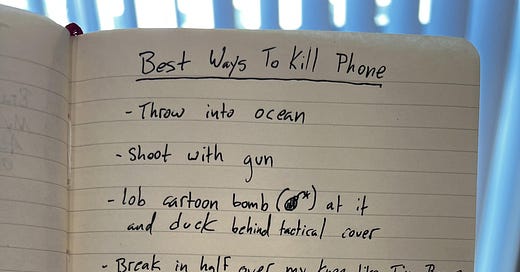 Best Ways To Kill Phone
- Throw into ocean
- Shoot with gun
- lob cartoon bomb ( ) at it
and duck behind tactical cover
- Break in half over my knee like